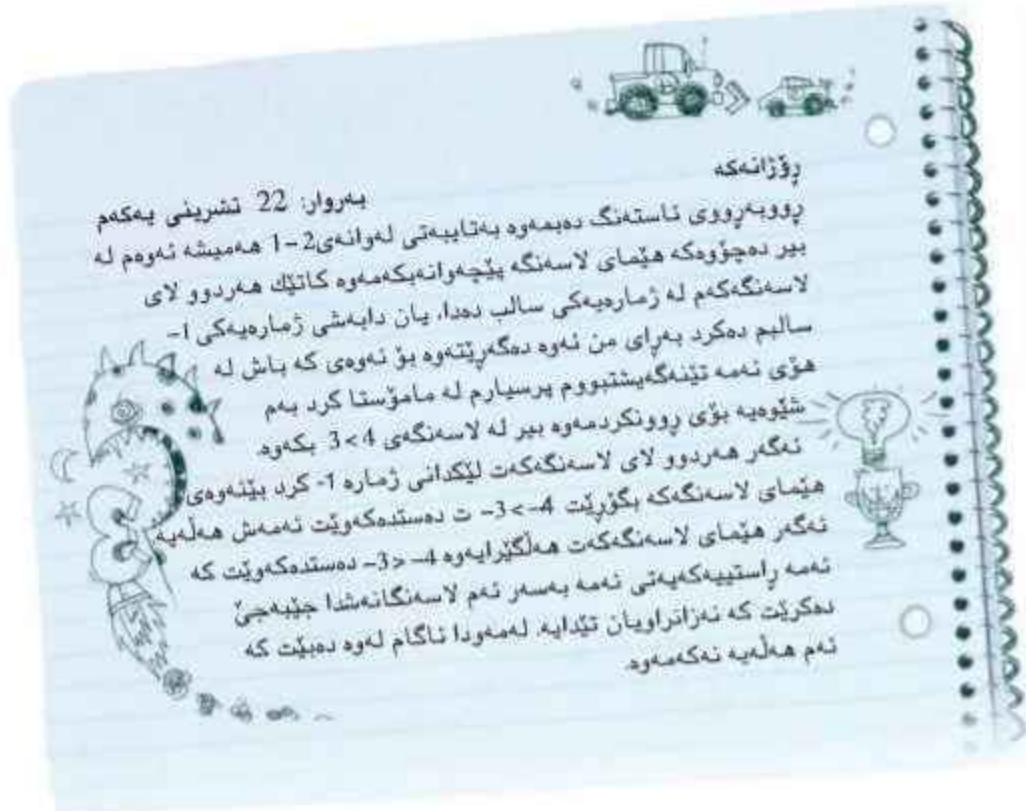 ڕۆژانەکە
بەروار: 22 تشرینی یەکەم
ڕووبەڕووی ئاستەنگ دەبمەوە بەتایبەتی لەوانەی2-1 هەمیشە ئەوەم لە
بیر دەچۆوەکە هێمای لاسەنگە پێچەوانەبکەمەوە کاتێك هەردوو لای
لاسەنگەکەم لە ژمارەیەکی سالب دەدا، یان دابەشی ژمارەیەکی 1-
سالبم دەکرد بەڕای من ئەوە دەگەڕێتەوە بۆ ئەوەی کە باش لە
هۆی ئەمە تێنەگەیشتبووم پرسیارم لە مامۆستا کرد بەم
شێوەیە بۆی ڕوونکردمەوە بیر لە لاسەنگەی 4>3 بکەوە.
ئەگەر هەردوو لای لاسەنگەکەت لێکدانی ژمارە 1- کرد بێئەوەی
هێمای لاسەنگەکە بگۆڕێت 4->3- ت دەستدەکەوێت ئەمەش هەڵەیە
ئەگەر هێمای لاسەنگەکەت هەڵگێڕایەوە 4-<3- دەستدەکەوێت کە
ئەمە ڕاستییەکەیەتی ئەمە بەسەر ئەم لاسەنگانەشدا جێبەجێ
دەکرێت کە نەزانراویان تێدایە. لەمەودا ئاگام لەوە دەبێت کە
ئەم هەڵەیە نەکەمەوە.